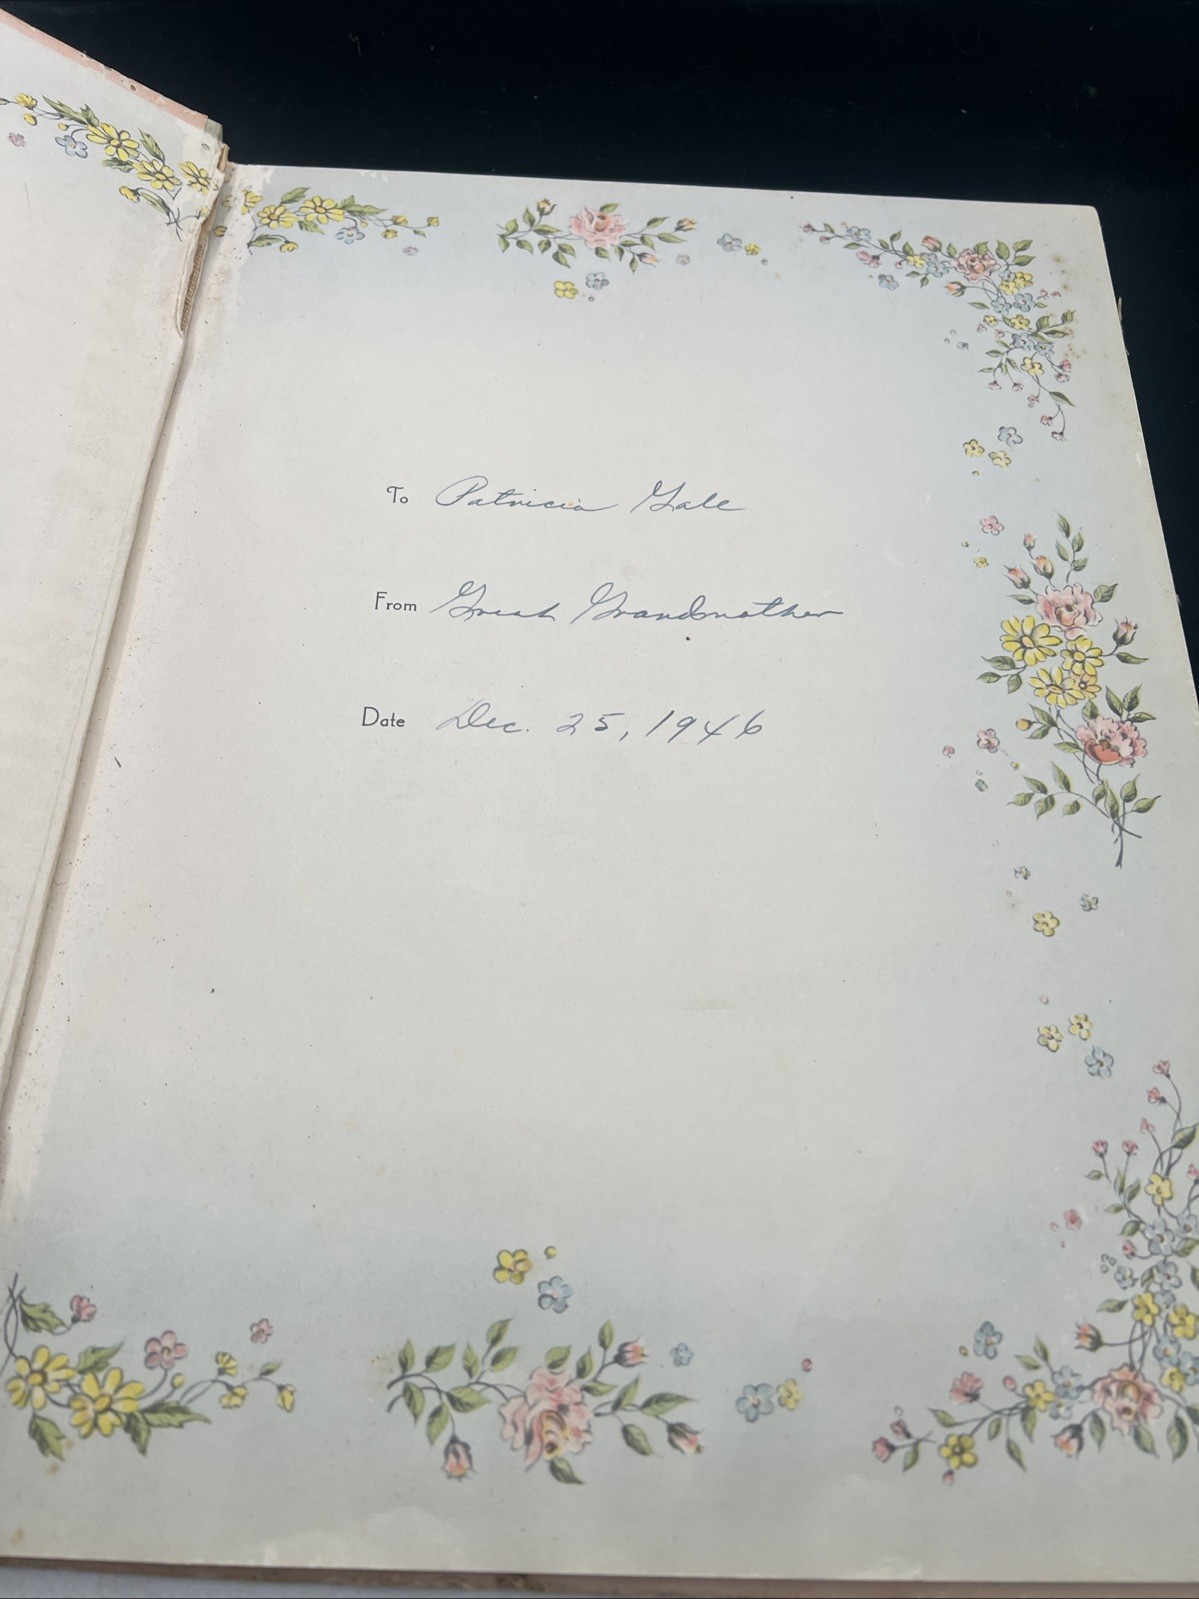 To Patricia Gale
From Great Grandmother
Date Dec. 25, 1946